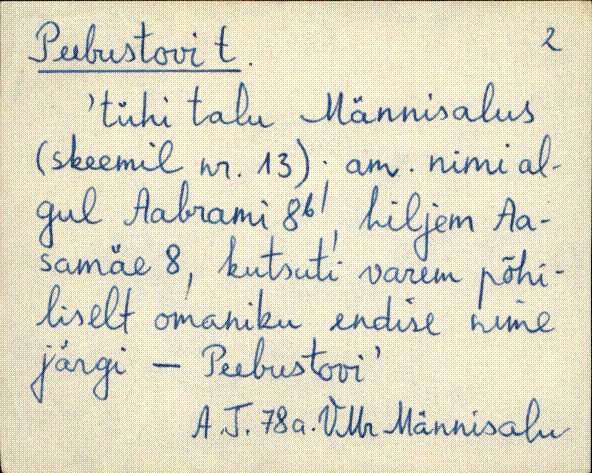 Peebustovi t. 2
'tühi talu Männisalus
(skeemil nr. 13); am. nimi al-
gul Aabrami 8b, hiljem Aa-
samäe 8, kutsuti varem põhi-
liselt omaniku endise nime
järgi — Peebustovi'
A. J. 78a. VMr Männisalu